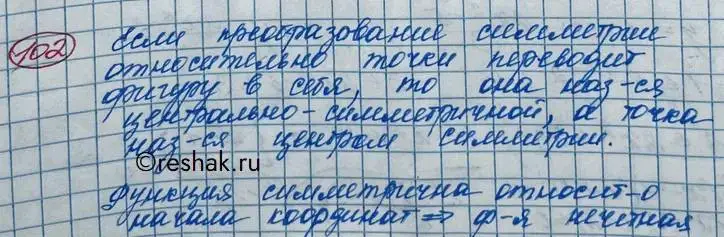 102 Если преобразование симметрии
относительно точки переводит
фигуру в себя, то она наз-ся
центрально-симметричной, а точка
наз-ся центром симметрии.
©reshak.ru
Функция симметрична относит-о
начала координат ⇒ ф-я нечетная